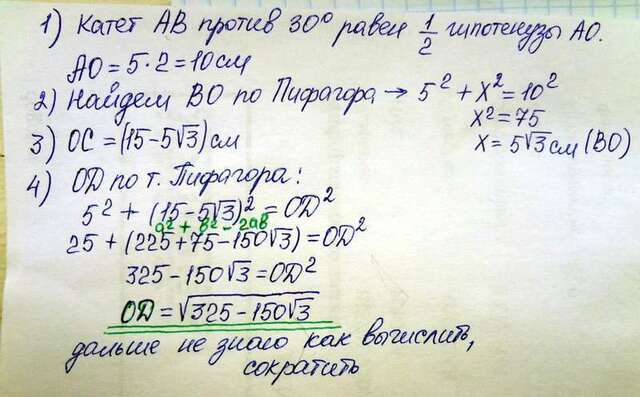 1) Катет АВ против 30° равен 1/2 гипотенузы АО.
АО = 5·2 = 10 см
2) Найдем ВО по Пифагора → 5² + х² = 10²
х² = 75
х = 5√3 см (ВО)
3) ОС = (15 - 5√3) см
4) OD по т. Пифагора:
5² + (15 - 5√3)² = OD²
a² + b² - 2ab
25 + (225 + 75 - 150√3) = OD²
325 - 150√3 = OD²
OD = √325 - 150√3
дальше не знаю как вычислить,
сократить